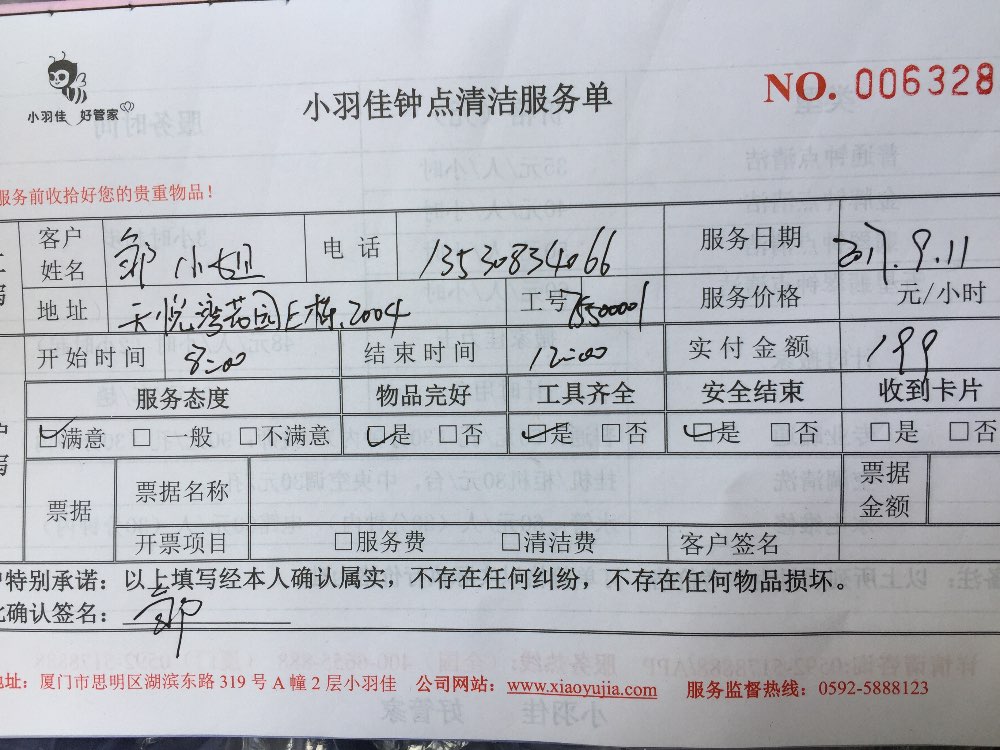 小羽佳 好管家
小羽佳钟点清洁服务单
NO. 006328
服务前收拾好您的贵重物品！
客户姓名 邹小姐 电话 13530834066 服务日期 2017.9.11
地址 天悦湾花园E栋.2004 工号 15500001 服务价格 元/小时
开始时间 8:00 结束时间 12:00 实付金额 199
服务态度 物品完好 工具齐全 安全结束 收到卡片
☑满意 □一般 □不满意 ☑是 □否 ☑是 □否 ☑是 □否 □是 □否
票据 票据名称 票据金额
开票项目 □服务费 □清洁费 客户签名
特别承诺：以上填写经本人确认属实，不存在任何纠纷，不存在任何物品损坏。
确认签名：邹
地址：厦门市思明区湖滨东路 319 号 A 幢 2 层小羽佳 公司网站：www.xiaoyujia.com 服务监督热线：0592-5888123